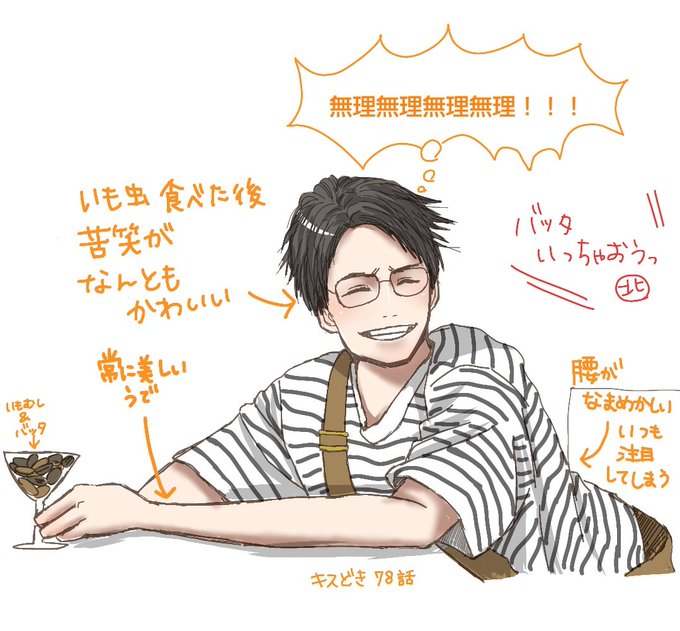 無理無理無理無理！！！
いも虫 食べた後
苦笑が
なんとも
かわいい
バッタ
いっちゃおうっ
北
常に美しい
うで
いもむし
&
バッタ
腰が
なまめかしい
いつも
注目
してしまう
キスどき 78話